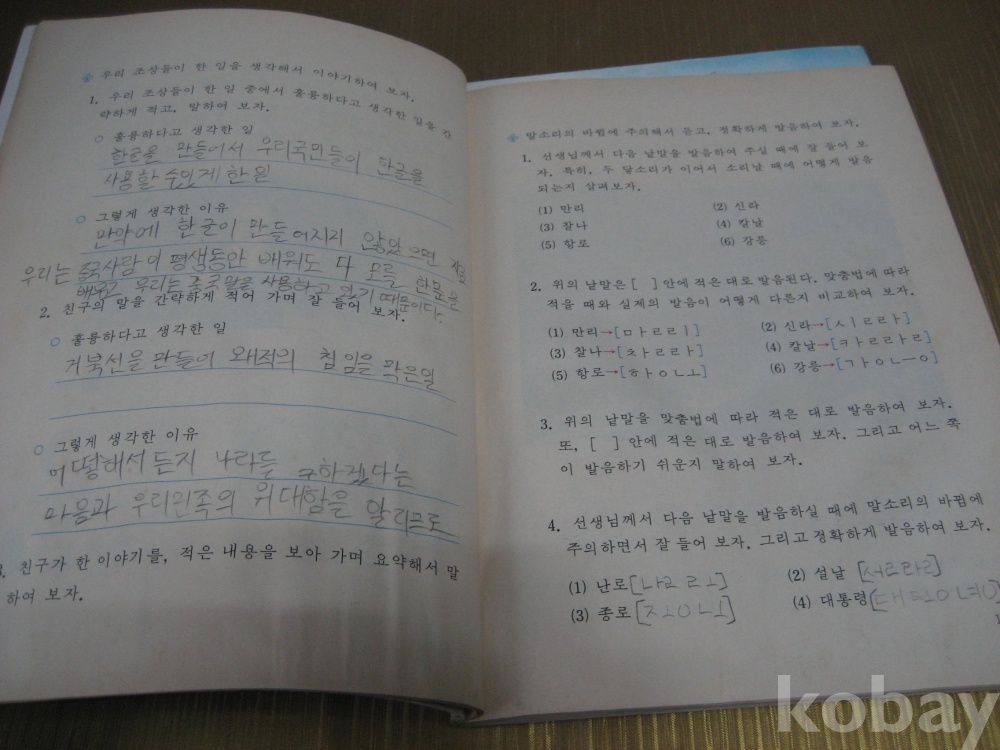 우리 조상들이 한 일을 생각해서 이야기하여 보자.
1. 우리 조상들이 한 일 중에서 훌륭하다고 생각한 일을 간
략하게 적고, 말하여 보자.
○ 훌륭하다고 생각한 일
한글을 만들어서 우리국민들이 한글을
사용할 수있게 한일
○ 그렇게 생각한 이유
만약에 한글이 만들어지지 않았으면 지금
우리는 중국사람이 평생동안 배워도 다 모를 한문을
배우고 우리는 중국말을 사용하고 있기 때문이다.
2. 친구의 말을 간략하게 적어 가며 잘 들어 보자.
○ 훌륭하다고 생각한 일
거북선을 만들어 왜적의 침입을 막은일
○ 그렇게 생각한 이유
어떻해서든지 나라를 구하겠다는
마음과 우리민족의 위대함을 알리므로
3. 친구가 한 이야기를, 적은 내용을 보아 가며 요약해서 말
하여 보자.
말소리의 바뀜에 주의해서 듣고, 정확하게 발음하여 보자.
1. 선생님께서 다음 낱말을 발음하여 주실 때에 잘 들어 보
자. 특히, 두 말소리가 이어서 소리날 때에 어떻게 발음
되는지 살펴보자.
(1) 만리 (2) 신라
(3) 찰나 (4) 칼날
(5) 항로 (6) 강릉
2. 위의 낱말은 [ ] 안에 적은 대로 발음된다. 맞춤법에 따라
적을 때와 실제의 발음이 어떻게 다른지 비교하여 보자.
(1) 만리→[ㅁㅏㄹㄹㅣ] (2) 신라→[ㅅㅣㄹㄹㅏ]
(3) 찰나→[ㅊㅏㄹㄹㅏ] (4) 칼날→[ㅋㅏㄹㄹㅏㄹ]
(5) 항로→[ㅎㅏㅇㄴㅗ] (6) 강릉→[ㄱㅏㅇㄴㅡㅇ]
3. 위의 낱말을 맞춤법에 따라 적은 대로 발음하여 보자.
또, [ ] 안에 적은 대로 발음하여 보자. 그리고 어느 쪽
이 발음하기 쉬운지 말하여 보자.
4. 선생님께서 다음 낱말을 발음하실 때에 말소리의 바뀜에
주의하면서 잘 들어 보자. 그리고 정확하게 발음하여 보자.
(1) 난로[ㄴㅏㄹㄹㅗ] (2) 설날 [ㅅㅓㄹㄹㅏㄹ]
(3) 종로[ㅈㅗㅇㄴㅗ] (4) 대통령[ㄷㅐㅌㅗㅇㄴㅕㅇ]
kobay